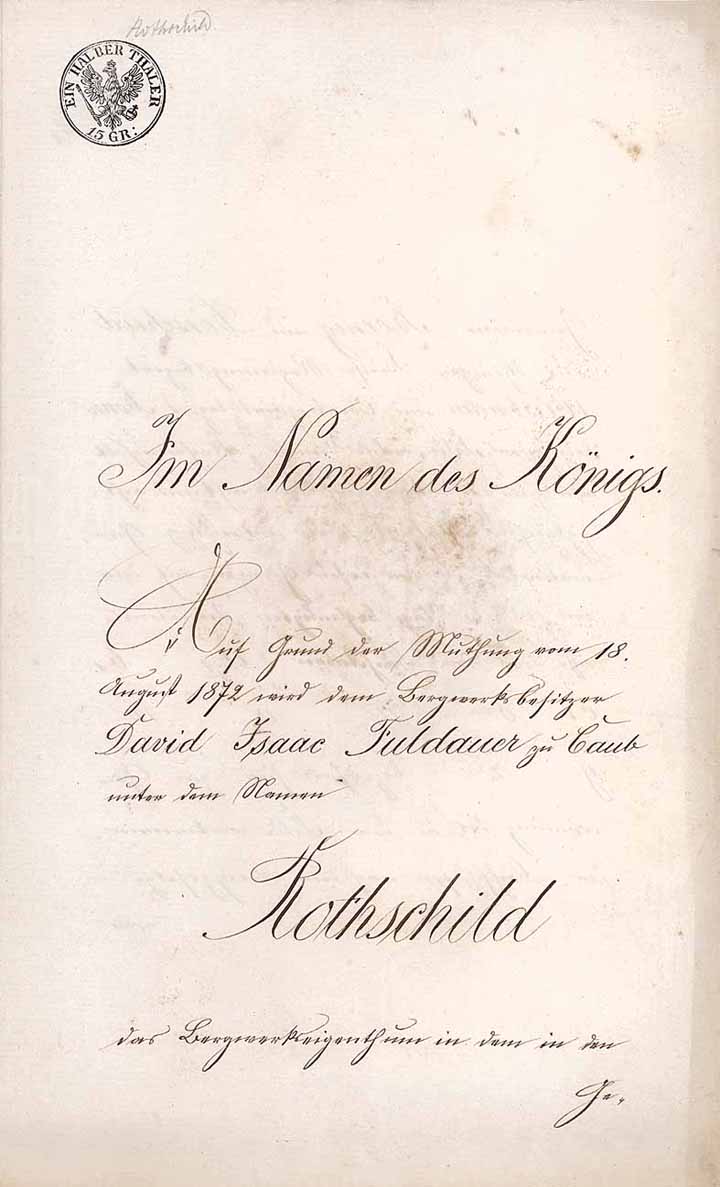 Rothschild.
EIN HALBER THALER
15 GR:
Im Namen des Königs.
Auf Grund der Muthung vom 18.
August 1872 wird dem Bergwerksbesitzer
David Isaac Fuldauer zu Caub
unter dem Namen
Rothschild
das Bergwerkseigenthum in dem in den
Ge-